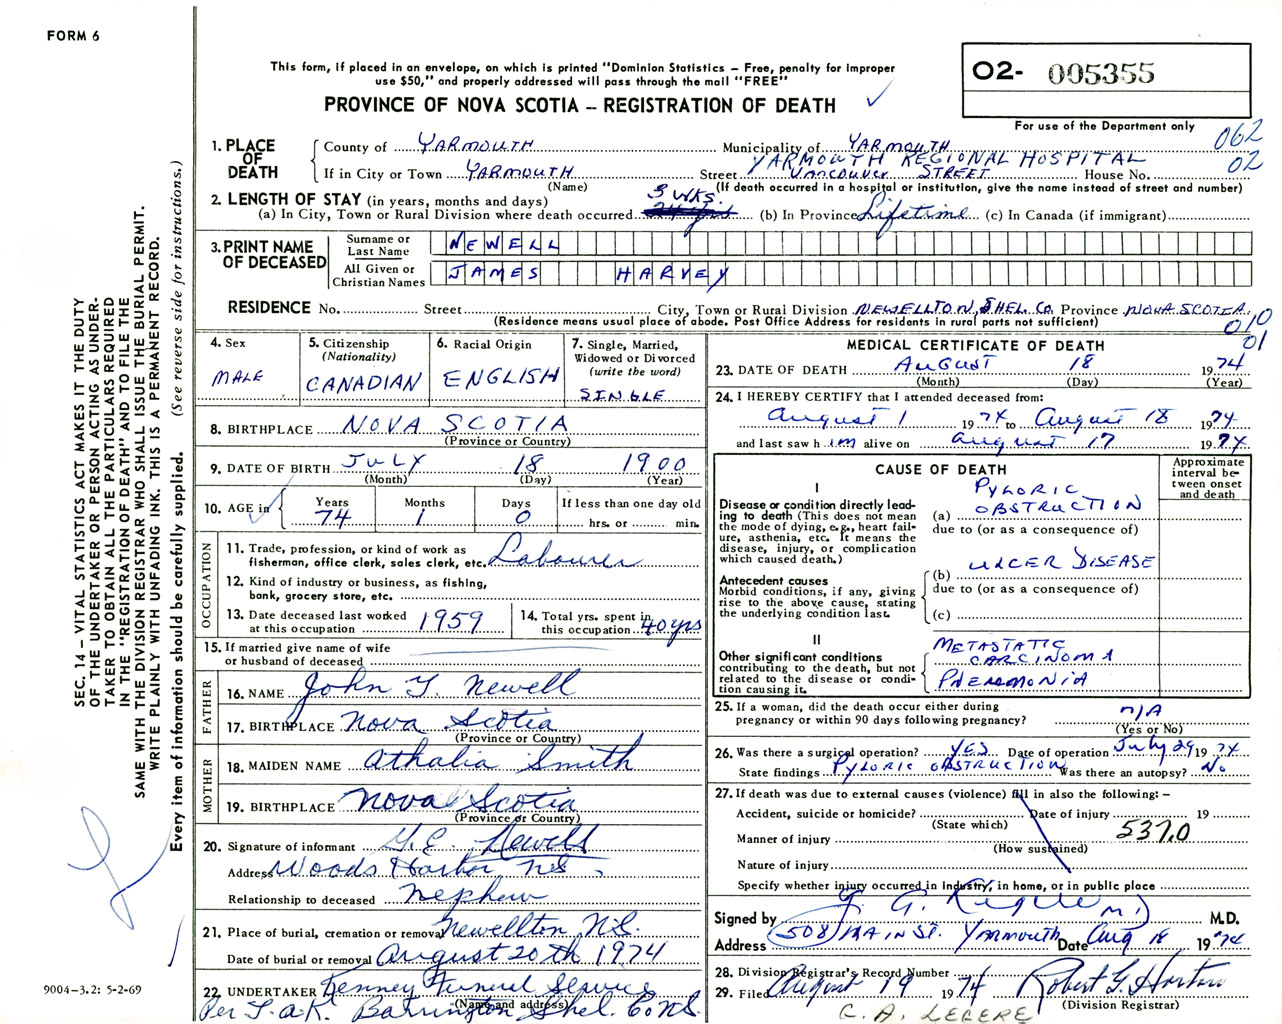 FORM 6
This form, if placed in an envelope, on which is printed "Dominion Statistics – Free, penalty for improper
use $50," and properly addressed will pass through the mail "FREE"
PROVINCE OF NOVA SCOTIA -- REGISTRATION OF DEATH
02- 005355
For use of the Department only
062
02
1. PLACE OF DEATH
County of YARMOUTH Municipality of YARMOUTH
YARMOUTH REGIONAL HOSPITAL
If in City or Town YARMOUTH Street VANCOUVER STREET House No.
(Name) (If death occurred in a hospital or institution, give the name instead of street and number)
2. LENGTH OF STAY (in years, months and days) 3 WKS.
(a) In City, Town or Rural Division where death occurred (b) In Province Lifetime (c) In Canada (if immigrant)
3. PRINT NAME OF DECEASED
Surname or Last Name NEWELL
All Given or Christian Names JAMES HARVEY
RESIDENCE No. Street City, Town or Rural Division NEWELLTON, SHEL. CO. Province NOVA SCOTIA
(Residence means usual place of abode. Post Office Address for residents in rural parts not sufficient)
010
01
4. Sex MALE
5. Citizenship (Nationality) CANADIAN
6. Racial Origin ENGLISH
7. Single, Married, Widowed or Divorced (write the word) SINGLE
8. BIRTHPLACE NOVA SCOTIA
(Province or Country)
9. DATE OF BIRTH JULY 18 1900
(Month) (Day) (Year)
10. AGE in Years 74 Months 1 Days 0 If less than one day old hrs. or min.
OCCUPATION
11. Trade, profession, or kind of work as
fisherman, office clerk, sales clerk, etc. Labourer
12. Kind of industry or business, as fishing,
bank, grocery store, etc.
13. Date deceased last worked at this occupation 1959
14. Total yrs. spent in this occupation 40 yrs
15. If married give name of wife
or husband of deceased
FATHER
16. NAME John Y. Newell
17. BIRTHPLACE Nova Scotia
(Province or Country)
MOTHER
18. MAIDEN NAME Athalia Smith
19. BIRTHPLACE Nova Scotia
(Province or Country)
20. Signature of informant G. E. Newell
Address Woods Harbor N.S.
Relationship to deceased Nephew
21. Place of burial, cremation or removal Newellton N.S.
Date of burial or removal August 20th 1974
22. UNDERTAKER Kenney Funeral Service
(Name and address)
Per T.a.K. Barrington Shel. Co. N.S.
MEDICAL CERTIFICATE OF DEATH
23. DATE OF DEATH AUGUST 18 1974
(Month) (Day) (Year)
24. I HEREBY CERTIFY that I attended deceased from:
August 1 1974 to August 18 1974
and last saw h im alive on August 17 1974
CAUSE OF DEATH
Approximate interval between onset and death
I
Disease or condition directly leading to death (This does not mean
the mode of dying, e.g., heart failure, asthenia, etc. It means the
disease, injury, or complication
which caused death.)
(a) PYLORIC OBSTRUCTION
due to (or as a consequence of)
Antecedent causes
Morbid conditions, if any, giving
rise to the above cause, stating
the underlying condition last.
(b) ULCER DISEASE
due to (or as a consequence of)
(c)
II
Other significant conditions
contributing to the death, but not
related to the disease or condition causing it.
METASTATIC CARCINOMA
PNEUMONIA
25. If a woman, did the death occur either during
pregnancy or within 90 days following pregnancy? n/A
(Yes or No)
26. Was there a surgical operation? YES Date of operation July 29 1974
State findings PYLORIC OBSTRUCTION Was there an autopsy? No
27. If death was due to external causes (violence) fill in also the following: –
Accident, suicide or homicide? Date of injury 19
(State which)
537.0
Manner of injury
(How sustained)
Nature of injury
Specify whether injury occurred in Industry, in home, or in public place
Signed by M.D.
Address 508 MAIN ST. YARMOUTH Date Aug 18 1974
28. Division Registrar's Record Number
29. Filed August 19 1974 Robert G. Horton
(Division Registrar)
C. A. LEGERE
SEC. 14 – VITAL STATISTICS ACT MAKES IT THE DUTY
OF THE UNDERTAKER OR PERSON ACTING AS UNDER-
TAKER TO OBTAIN ALL THE PARTICULARS REQUIRED
IN THE "REGISTRATION OF DEATH" AND TO FILE THE
SAME WITH THE DIVISION REGISTRAR WHO SHALL ISSUE THE BURIAL PERMIT.
WRITE PLAINLY WITH UNFADING INK. THIS IS A PERMANENT RECORD.
Every item of information should be carefully supplied. (See reverse side for instructions.)
9004-3.2: 5-2-69